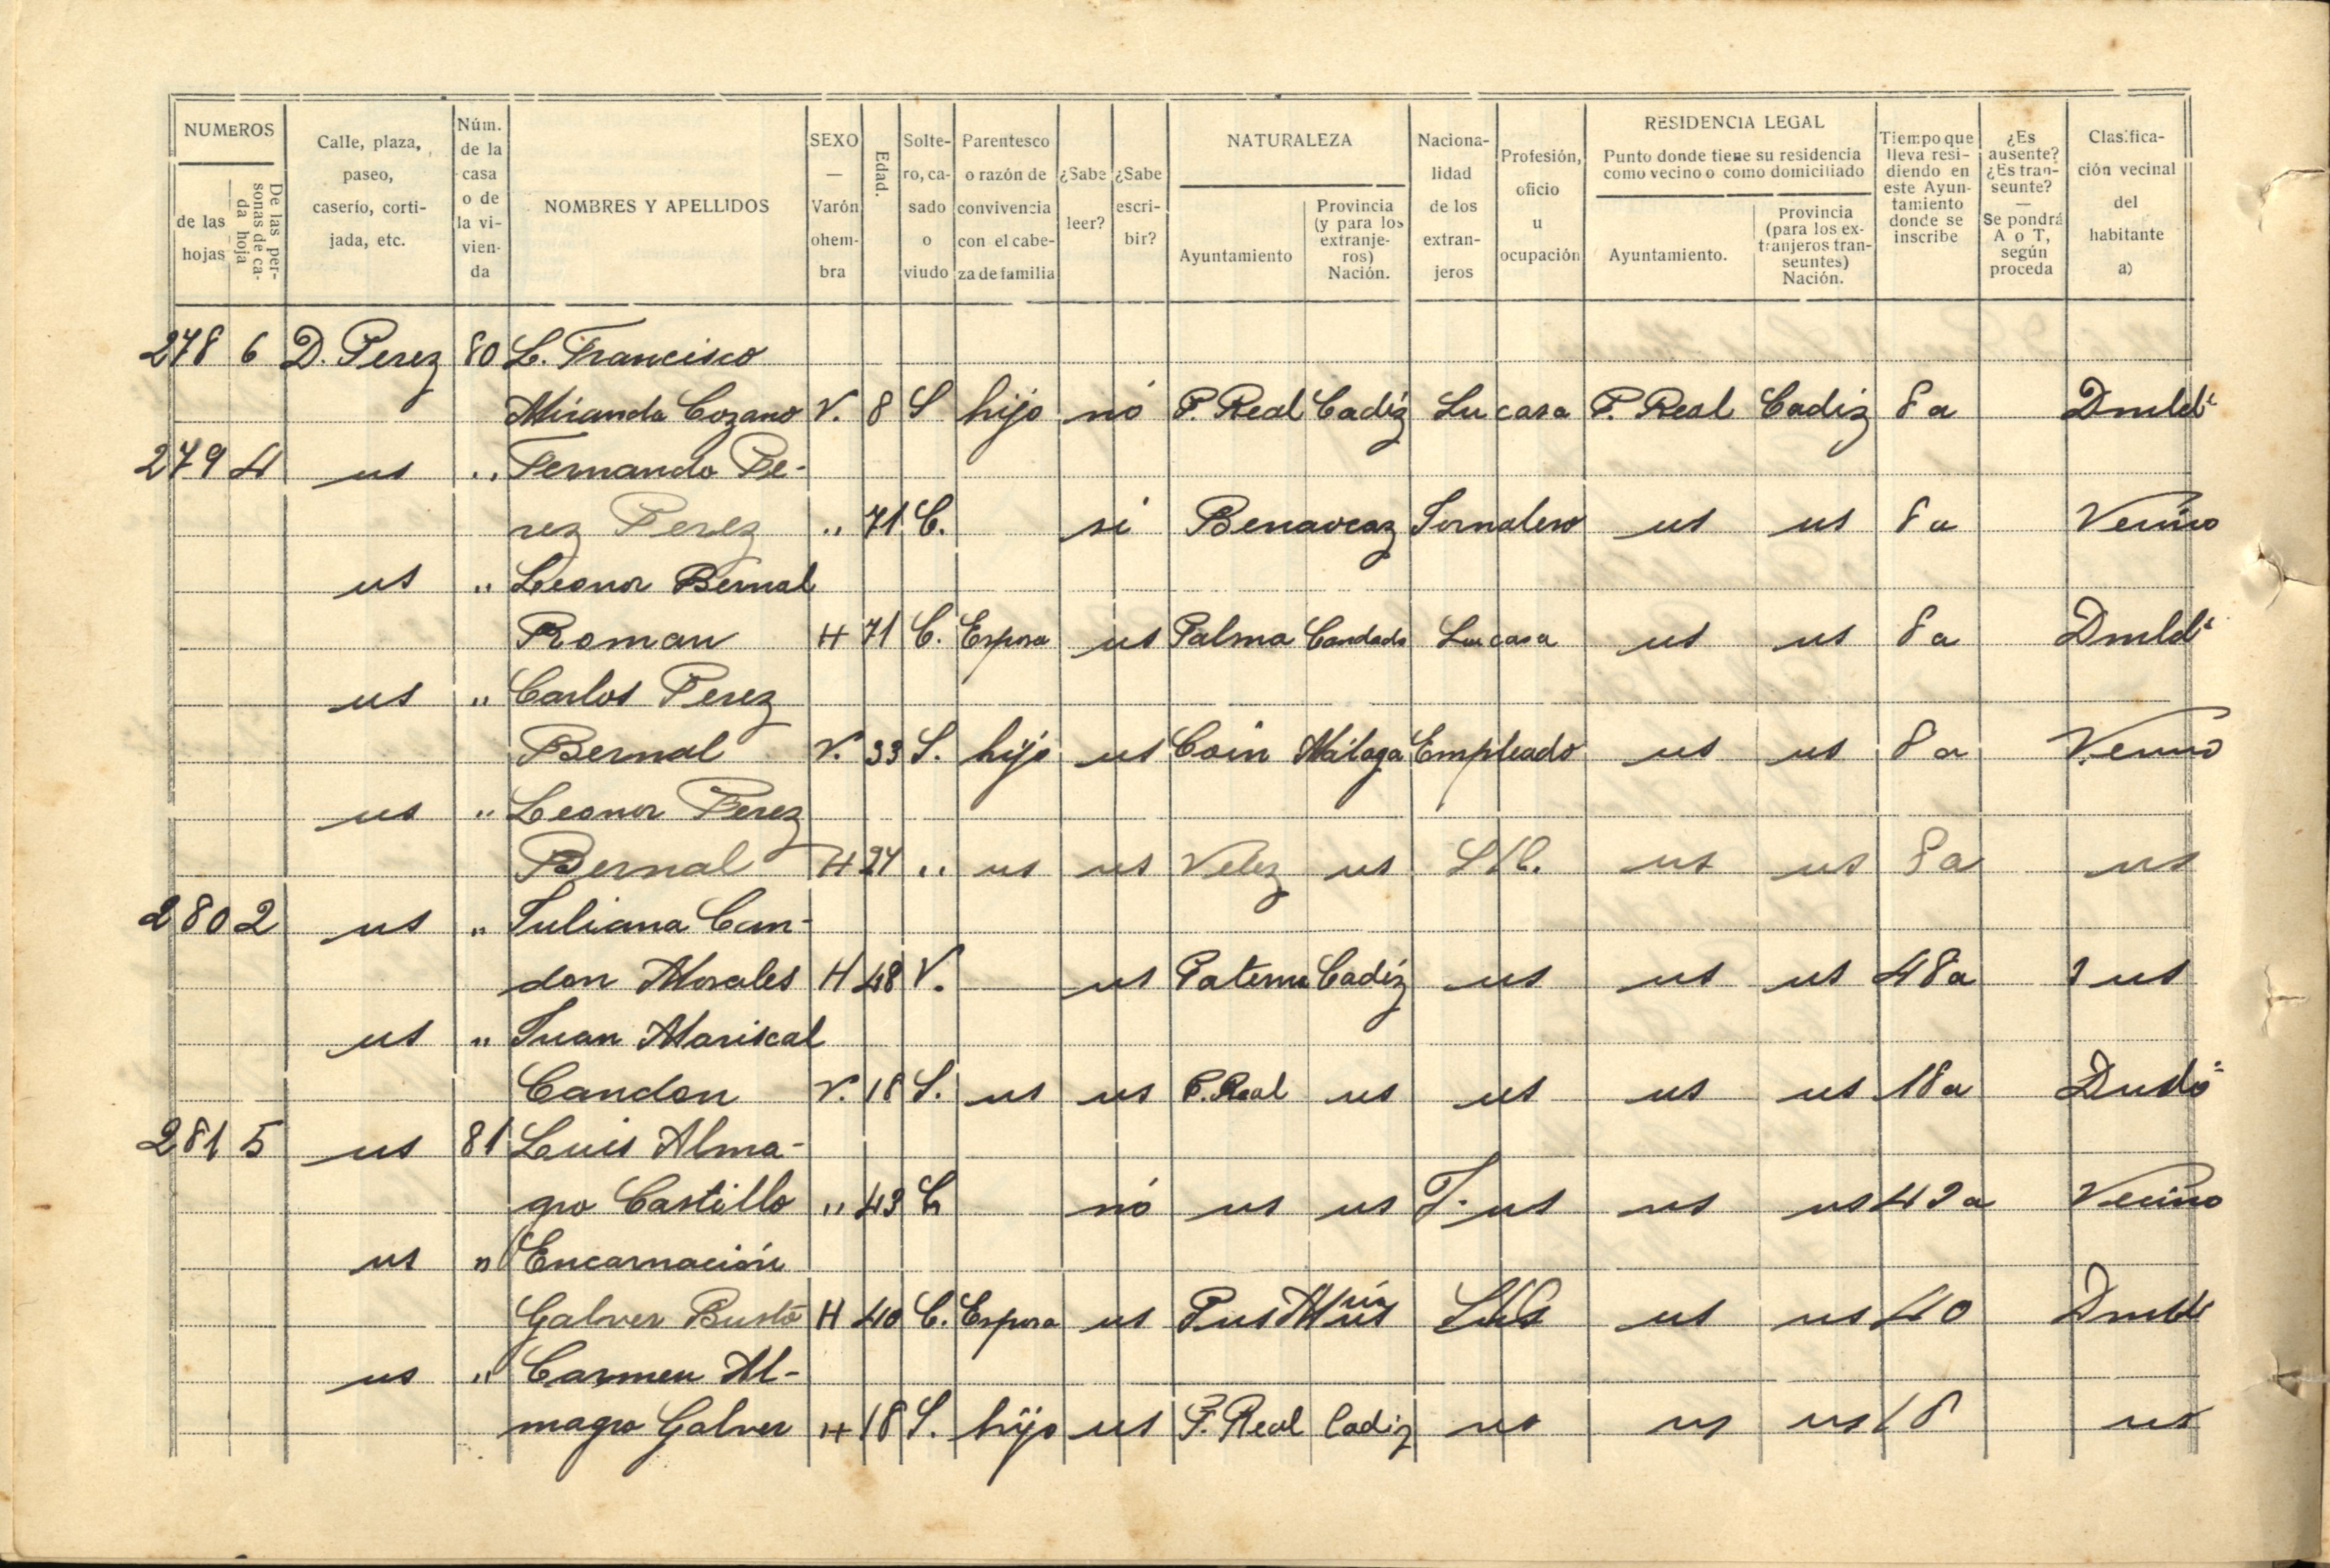 NUMEROS
de las hojas
De las personas de cada hoja
Calle, plaza, paseo, caserío, cortijada, etc.
Núm. de la casa o de la vivienda
NOMBRES Y APELLIDOS
SEXO — Varón o hembra
Edad.
Soltero, casado o viudo
Parentesco o razón de convivencia con el cabeza de familia
¿Sabe leer?
¿Sabe escribir?
NATURALEZA
Ayuntamiento
Provincia (y para los extranjeros) Nación.
Nacionalidad de los extranjeros
Profesión, oficio u ocupación
RESIDENCIA LEGAL
Punto donde tiene su residencia como vecino o como domiciliado
Ayuntamiento.
Provincia (para los extranjeros transeuntes) Nación.
Tiempo que lleva residiendo en este Ayuntamiento donde se inscribe
¿Es ausente? ¿Es transeunte? — Se pondrá A o T, según proceda
Clasificación vecinal del habitante a)
278 6 D. Perez 80 L. Francisco
Miranda Cozano V. 8 S hijo nó P. Real Cadiz Su casa P. Real Cadiz 8 a
279 4 us " Fernando Pe-
rez Perez " 71 C. si Benaocaz Jornalero us us 8 a Vecino
us " Leonor Bernal
Roman H 71 C. Esposa us Palma Su casa us us 8 a
us " Carlos Perez
Bernal V. 33 S. hijo us Coin Málaga Empleado us us 8 a Vecino
us " Leonor Perez
Bernal H 24 " us us Velez us S/C. us us 8 a us
280 2 us " Juliana Can-
don Morales H 48 V. us Paterna Cadiz us us us 48 a us
us " Juan Mariscal
Candon V. 18 S. us us P. Real us us us us 18 a
281 5 us 81 Luis Alma-
gro Castillo " 43 C nó us us J. us us us 42 a Vecino
us " Encarnación
Galver Busto H 40 C. Esposa us us us 40
us " Carmen Al-
magro Galver H 18 S. hijo us P. Real Cadiz us us us 18 us